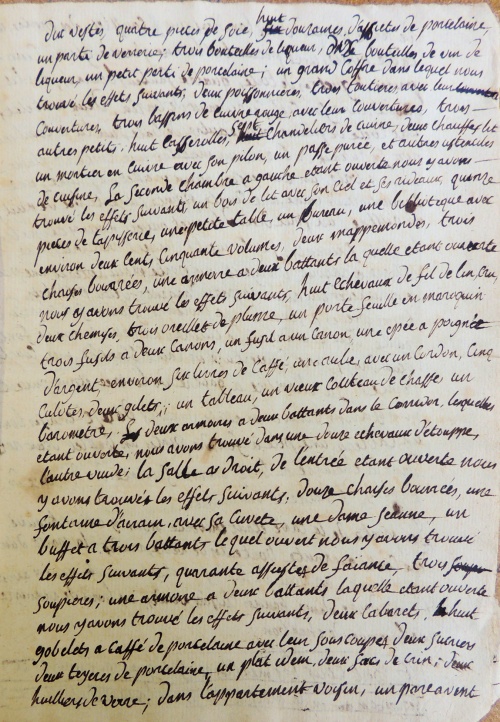 dix vestes, quatre pieces de soie, huit douzaines, d'assietes de porcelaine
un parti de verrerie; trois bouteilles de liqueur, onze bouteilles de vin de
liqueur, un petit parti de porcelaine; un grand Coffre dans lequel nous
trouvé les effets suivants; deux poissonnieres, trois tourtieres, avec leur
Couvertures, trois bassins de cuivre rouge, avec leur couvertures, trois
autres petits, huit casserolles, sept chandeliers de cuivre, deux chauffes lit
un mortier en cuivre avec son pilon, un passe purée, et autres ustenciles
de cuisine, La seconde chambre a gauche etant ouverte nous y avons
trouvé les effets suivants, un bois de lit avec son Ciel et ses rideaux, quinze
pieces de tapisserie, une petite table, un bureau, une biblioteque avec
environ deux Cents, Cinquante volumes, deux mappemondes, trois
chaises bourrées, une armoire a deux battants la quelle etant ouverte
nous y avons trouvé les effets suivants, huit echevaux de fil de lin, Cru,
deux chemises, trois oreillet de plume, un porte feuille en maroquin
trois fusils a deux Canons, un fusil a un Canon, une epée a poignée
d'argent environ six livres de Caffé, une aube, avec un Cordon, Cinq
Calotes, deux gilets, un tableau, un vieux Couteau de chasse un
barometre, deux armoires a deux battants dans le Corridor, lesquelles
etant ouverte, nous avons trouvé dans une douze echevaux d'étouppe,
l'autre vuide; la Salle a droit, de l'entrée etant ouverte nous
y avons trouvés les effets suivants, douze chaises bourrées, une
fontaine d'airain, avec sa Cuvete, une dame Jeanne, un
buffet a trois battants lequel ouvert nous y avons trouvé
les effets suivants, quarante assiettes de faiance, trois
soupieres; une armoire a deux battants laquelle etant ouverte
nous y avons trouvé les effets suivants, deux Cabarets, huit
gobelets a Caffé de porcelaine avec leur sous coupes deux sucriers
deux teyeres de porcelaine, un plat idem, deux sacs de crin; deux
huilliers de verre; dans l'appartement voisin, un paravent